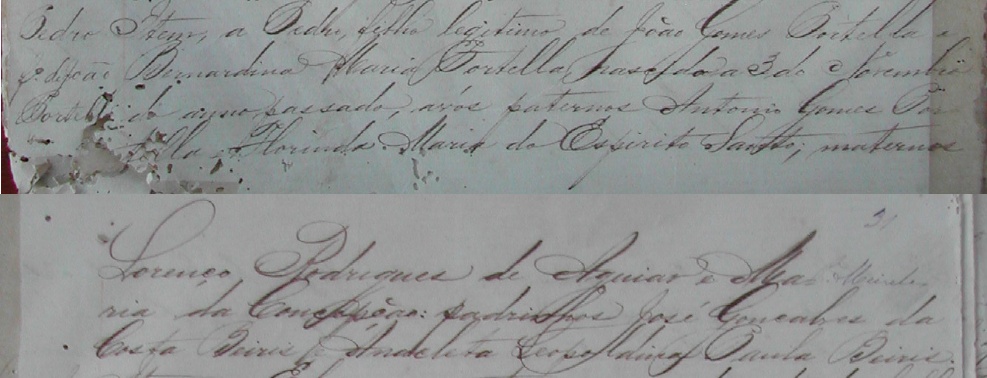 Pedro Item, a Pedro, filho legitimo de João Gomes Portella e
fº de João Bernardina Maria Portella, nascido a 3 de Novembro
Portella do anno passado, avós paternos Antonio Gomes Por
tella Florinda Maria do Espirito Santo; maternos
31
Lorenço Rodrigues de Aguiar e Ma
ria da Concepção: padrinhos José Gonçalves da
Costa Beiris, e Anacleta Leopoldina Paula Beiris.